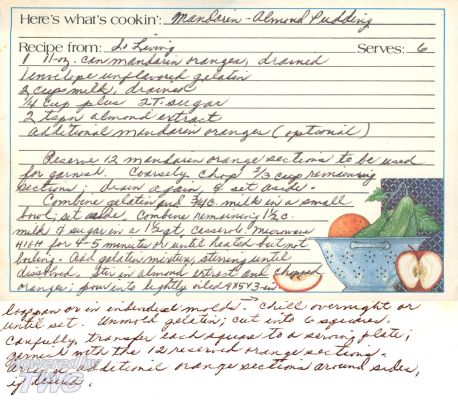 Here's what's cookin': Mandarin-Almond Pudding
Recipe from: So. Living Serves: 6
1 11-oz. can mandarin oranges, drained
1 envelope unflavored gelatin
2 cups milk, drained
1/4 cup plus 2 T. sugar
2 tspn almond extract
additional mandarin oranges (optional)
Reserve 12 mandarin orange sections to be used
for garnish. Coarsely chop 2/3 cup remaining
sections; drain again, & set aside.
Combine gelatin and 3/4 c. milk in a small
bowl, set aside. Combine remaining 1 1/2 c.
milk & sugar in a 1 1/2 qt. casserole microwave
HIGH for 4-5 minutes or until heated but not
boiling. Add gelatin mixture, stirring until
dissolved. Stir in almond extract and chopped
oranges; pour into lightly oiled 9X5X3-in
loafpan or in individual molds. Chill overnight or
until set. Unmold gelatin; cut into 6 squares.
Carefully, transfer each square to a serving plate;
garnish with the 12 reserved orange sections.
Arrange additional orange sections around sides,
if desired.
powered by
TWG